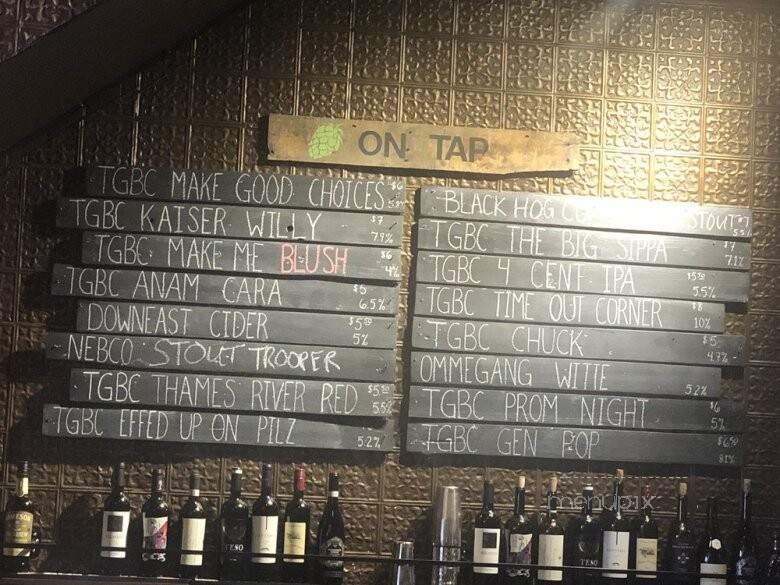 ON TAP
TGBC MAKE GOOD CHOICES $6
TGBC KAISER WILLY $7 7.9%
TGBC MAKE ME BLUSH $6 4%
TGBC ANAM CARA $5 6.5%
DOWNEAST CIDER $5.50 5%
NEBCO STOLET TROOPER
TGBC THAMES RIVER RED $5.50 5.5%
TGBC EFFED UP ON PILZ 5.2%
BLACK HOG STOUT $7
TGBC THE BIG SIPPA $7 7.1%
TGBC 4 CENT IPA $5.50 5.5%
TGBC TIME OUT CORNER $8 10%
TGBC CHUCK $5 4.7%
OMMEGANG WITTE 5.2%
TGBC PROM NIGHT $6 5%
TGBC GEN POP $6.50 8.1%
menupix
TESO
TESO